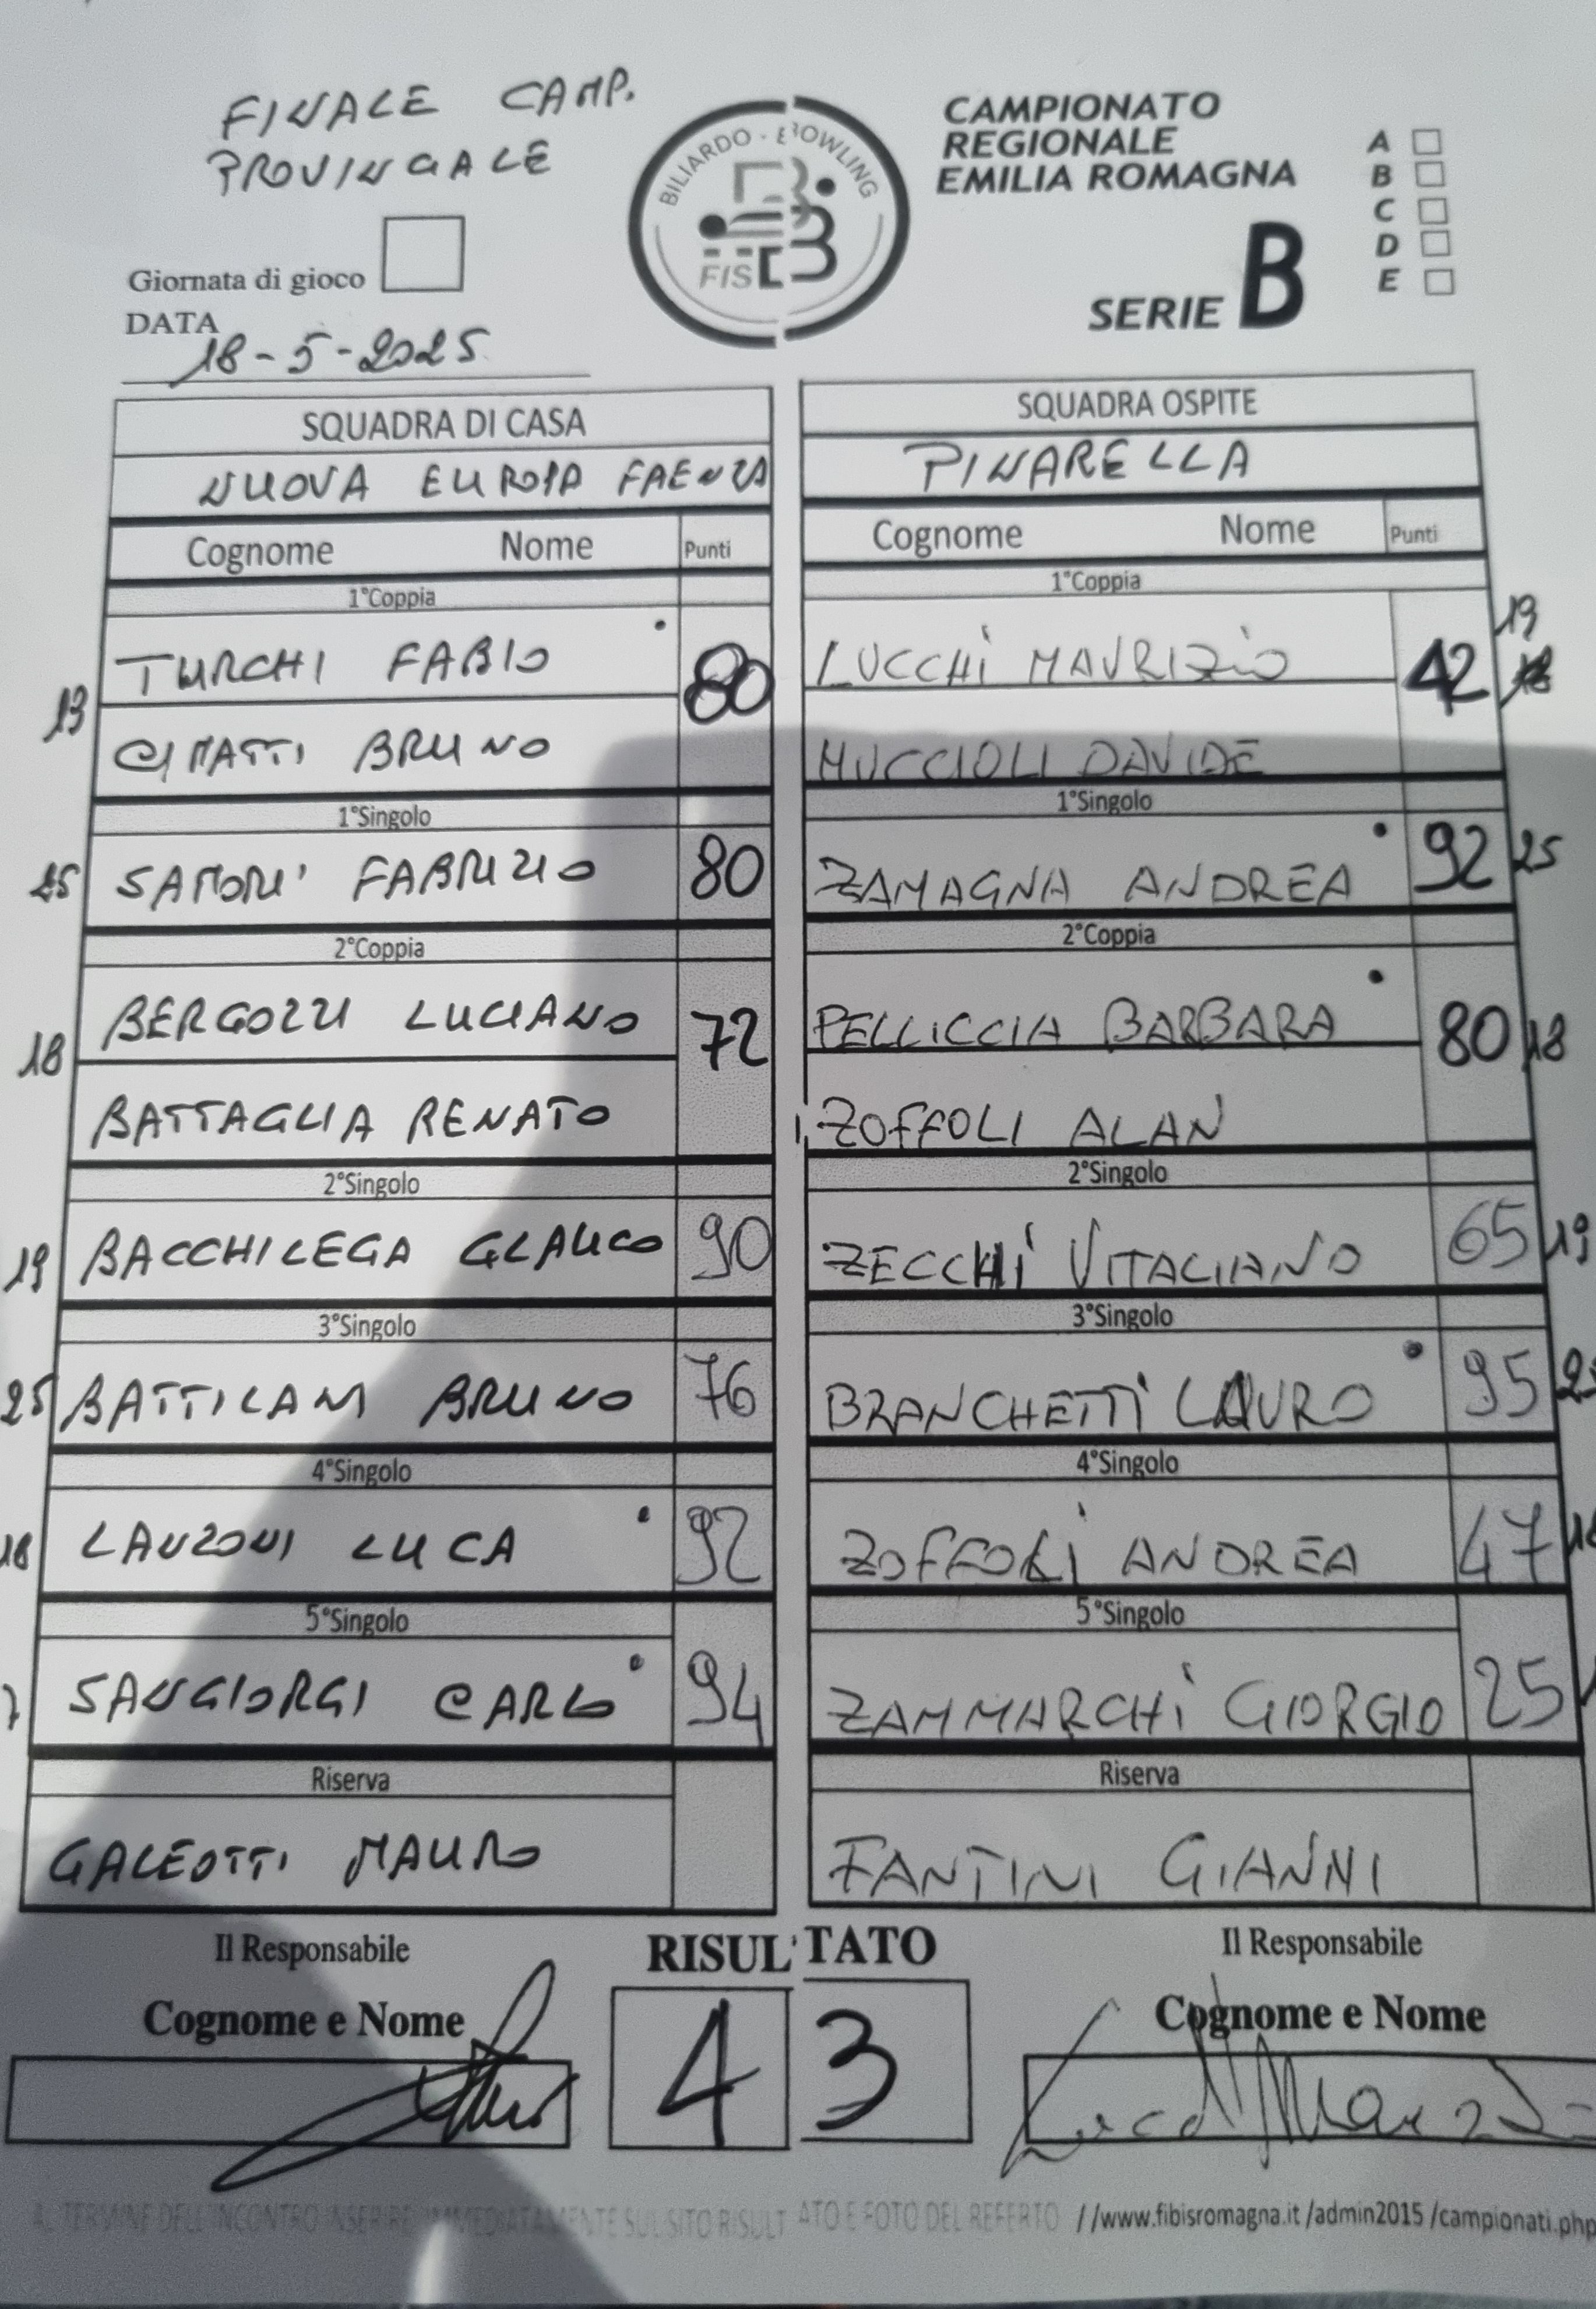 FINALE CAMP.
PROVINCIALE
BILIARDO - BOWLING
FISB
CAMPIONATO
REGIONALE
EMILIA ROMAGNA
SERIE B
A
B
C
D
E
Giornata di gioco
DATA
18-5-2025
SQUADRA DI CASA
NUOVA EUROPA FAENZA
Cognome Nome Punti
1°Coppia
TURCHI FABIO 80
13
CIMATTI BRUNO
1°Singolo
25 SAMORI' FABRIZIO 80
2°Coppia
BERGOZZI LUCIANO 72
18
BATTAGLIA RENATO
2°Singolo
19 BACCHILEGA GLAUCO 90
3°Singolo
25 BATTILANI BRUNO 76
4°Singolo
18 LANZONI LUCA 92
5°Singolo
7 SANGIORGI CARLO 94
Riserva
GALEOTTI MAURO
SQUADRA OSPITE
PINARELLA
Cognome Nome Punti
1°Coppia
LUCCHI MAURIZIO 42 13
MUCCIOLI DAVIDE
1°Singolo
ZAMAGNA ANDREA 92 25
2°Coppia
PELLICCIA BARBARA 80 18
ZOFFOLI ALAN
2°Singolo
ZECCHI VITALIANO 65 19
3°Singolo
BRANCHETTI LAURO 95
4°Singolo
ZOFFOLI ANDREA 47
5°Singolo
ZAMMARCHI GIORGIO 25
Riserva
FANTINI GIANNI
Il Responsabile
Cognome e Nome
RISULTATO
4 3
Il Responsabile
Cognome e Nome
AL TERMINE DELL'INCONTRO INSERIRE IMMEDIATAMENTE SUL SITO RISULTATO E FOTO DEL REFERTO //www.fibisromagna.it /admin2015 /campionati.php